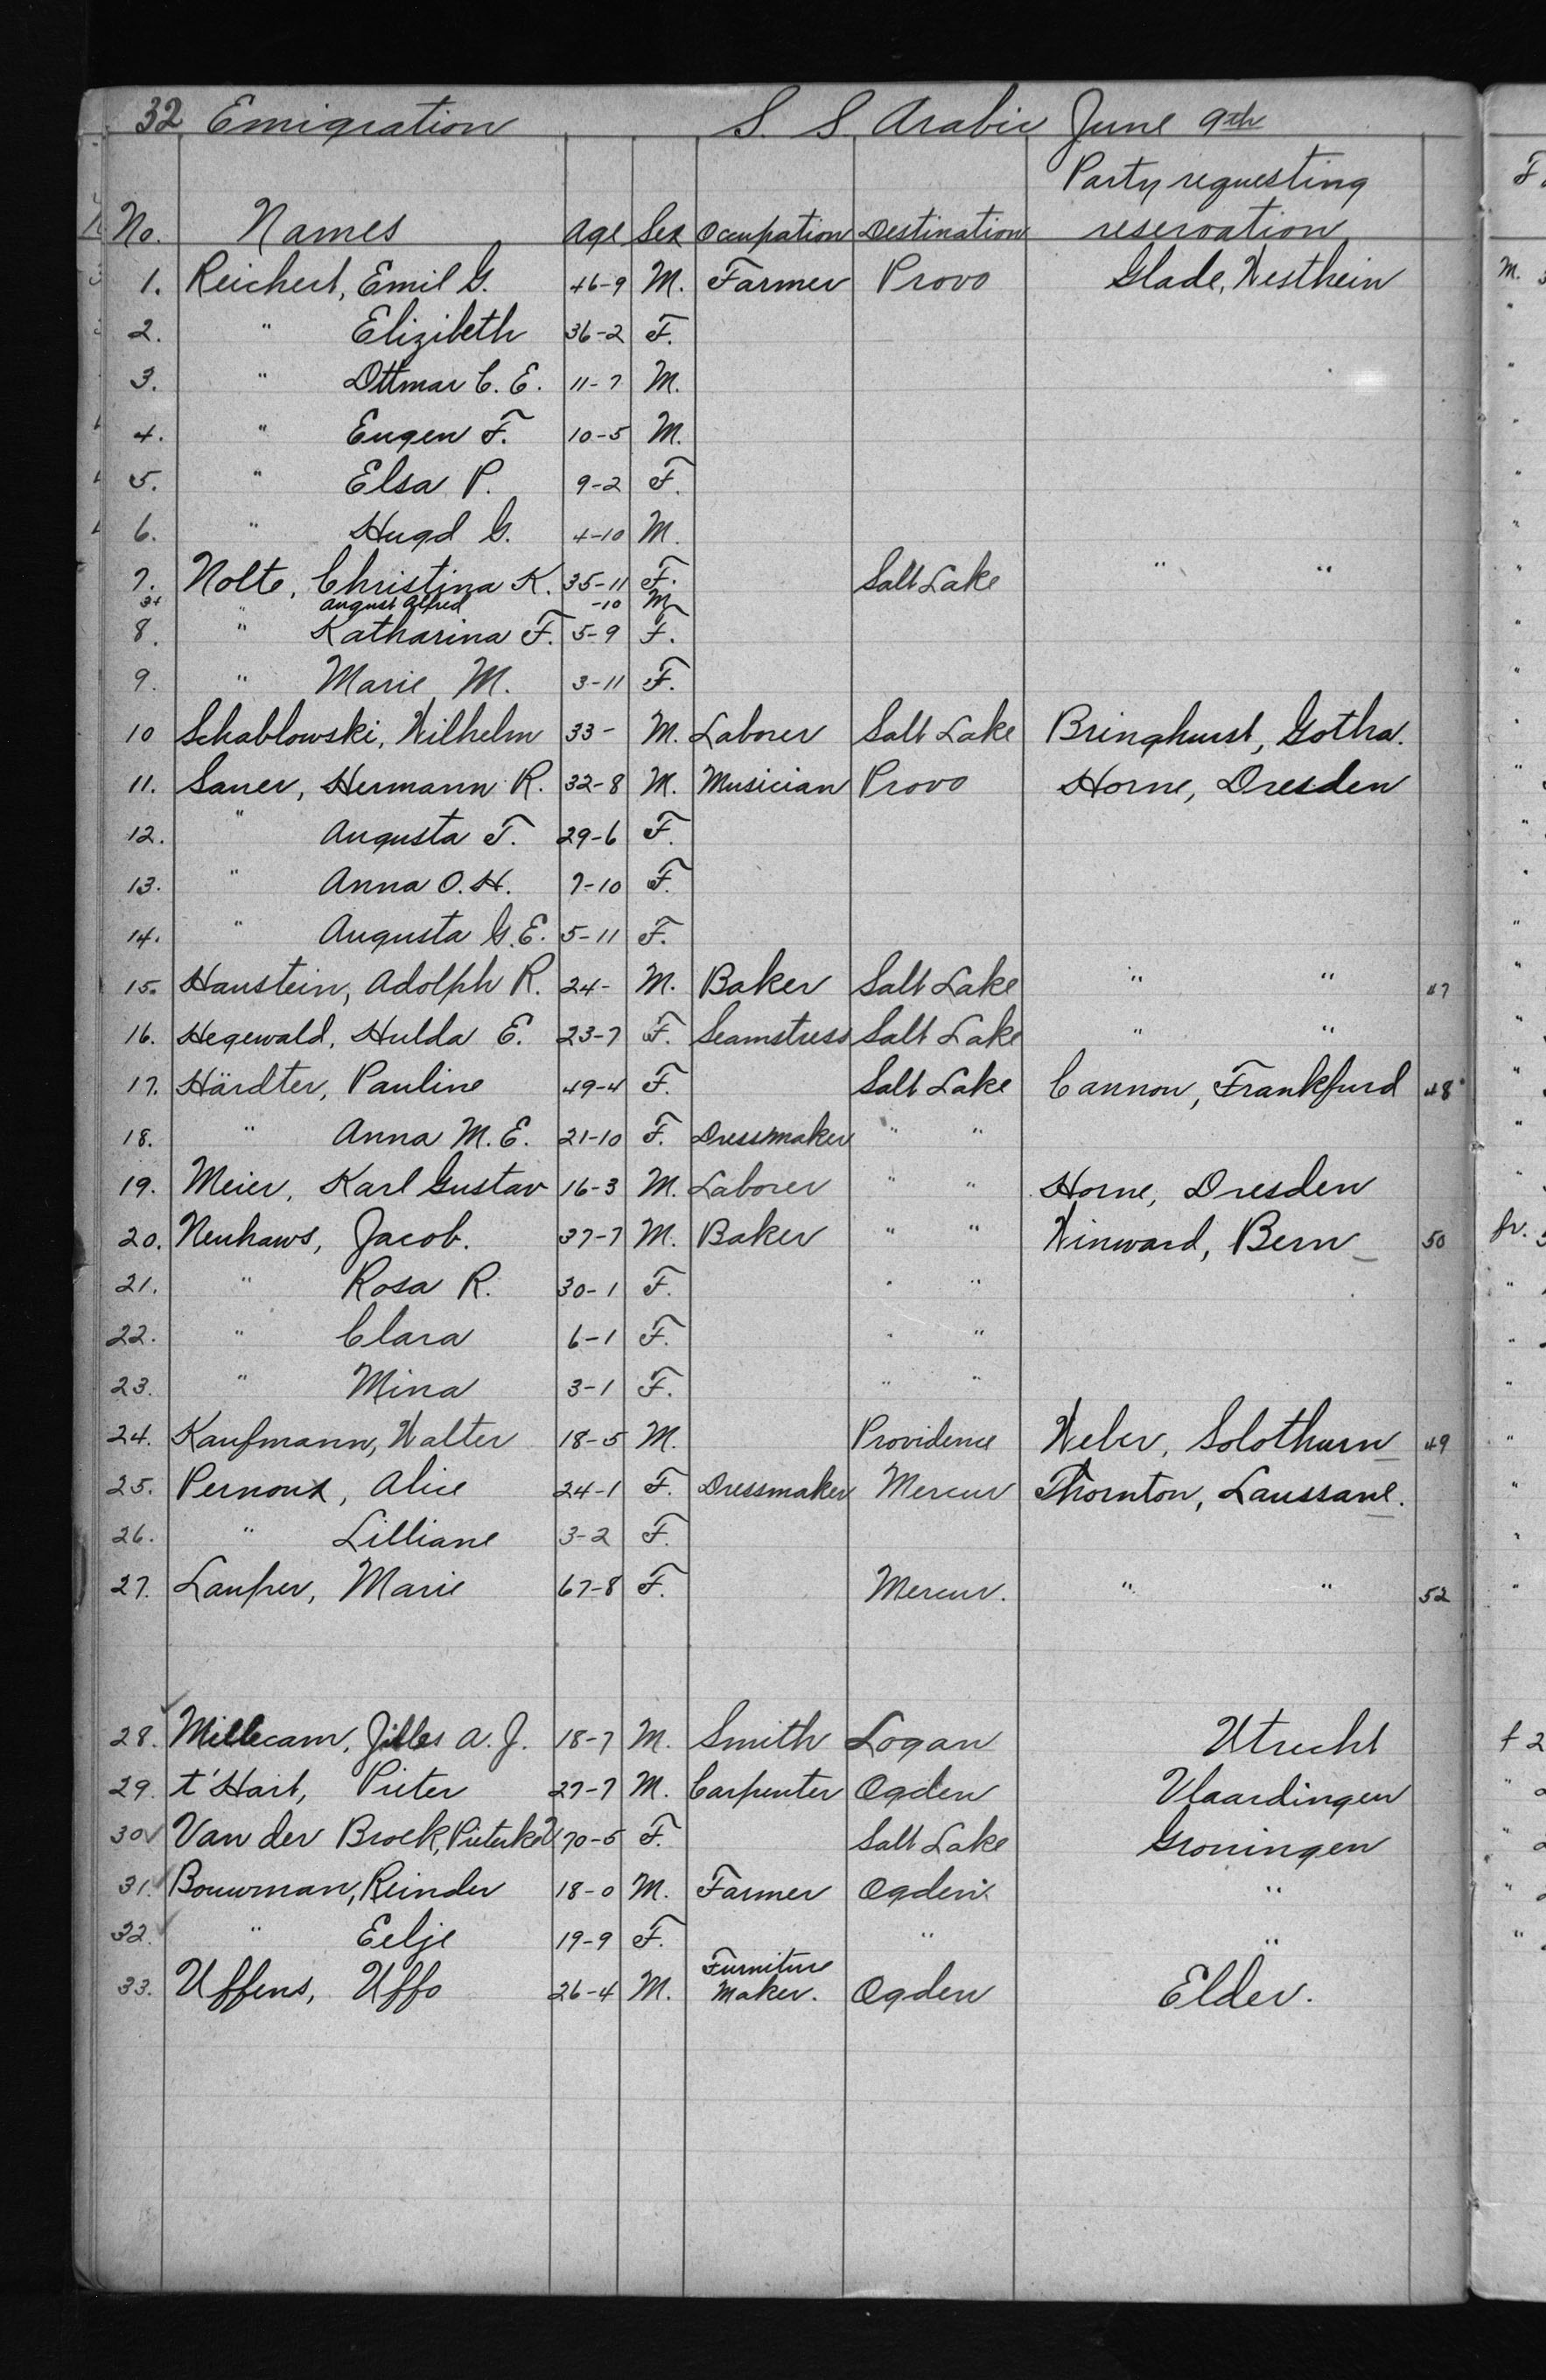 32 Emigration S. S. Arabic June 9th
No. Names Age Sex Occupation Destination Party requesting reservation
1. Reichert, Emil G. 46-9 M. Farmer Provo Glade, Westhein
2. " Elizibeth 36-2 F.
3. " Ottmar C. E. 11-7 M.
4. " Eugen F. 10-5 M.
5. " Elsa P. 9-2 F.
6. " Hugo G. 4-10 M.
7. Nolte, Christina K. 35-11 F. Salt Lake " "
34 " August Alfred -10 M
8. " Katharina F. 5-9 F.
9. " Marie M. 3-11 F.
10 Schablowski, Wilhelm 33- M. Laborer Salt Lake Bringhurst, Gotha.
11. Sauer, Hermann R. 32-8 M. Musician Provo Horne, Dresden
12. " Augusta T. 29-6 F.
13. " Anna O. H. 7-10 F.
14. " Augusta G. E. 5-11 F.
15. Haustein, Adolph R. 24- M. Baker Salt Lake " " 47
16. Hegewald, Hulda E. 23-7 F. Seamstress Salt Lake " "
17. Härdter, Pauline 49-4 F. Salt Lake Cannon, Frankfurd 48
18. " Anna M. E. 21-10 F. Dressmaker " "
19. Meier, Karl Gustav 16-3 M. Laborer " " Horne, Dresden
20. Neuhaws, Jacob. 37-7 M. Baker " " Winward, Bern 50
21. " Rosa R. 30-1 F. " "
22. " Clara 6-1 F. " "
23. " Mina 3-1 F. " "
24. Kaufmann, Walter 18-5 M. Providence Weber, Solothurn 49
25. Pernoux, Alice 24-1 F. Dressmaker Mercur Thornton, Laussane.
26. " Lilliane 3-2 F.
27. Lauper, Marie 67-8 F. Mercur. " " 52
28. Millecam, Jilles A. J. 18-7 M. Smith Logan Utrecht
29. t'Hart, Pieter 27-7 M. Carpenter Ogden Vlaardingen
30 Van der Broek, Pieterke 70-5 F. Salt Lake Groningen
31. Bouwman, Reinder 18-0 M. Farmer Ogden "
32. " Eelje 19-9 F. " "
33. Uffens, Uffo 26-4 M. Furniture Maker. Ogden Elder.